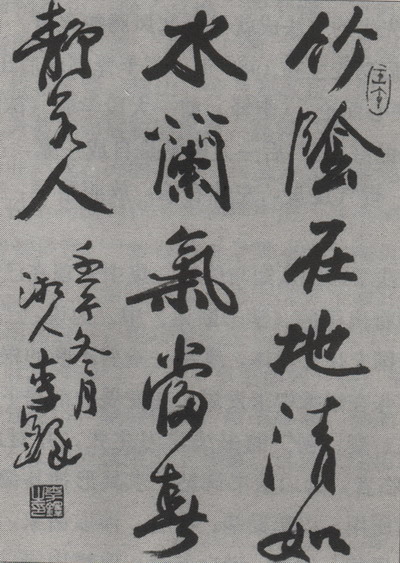 竹陰在地清如
水蘭氣當春
靜若人
壬午冬月
湖人李鐸